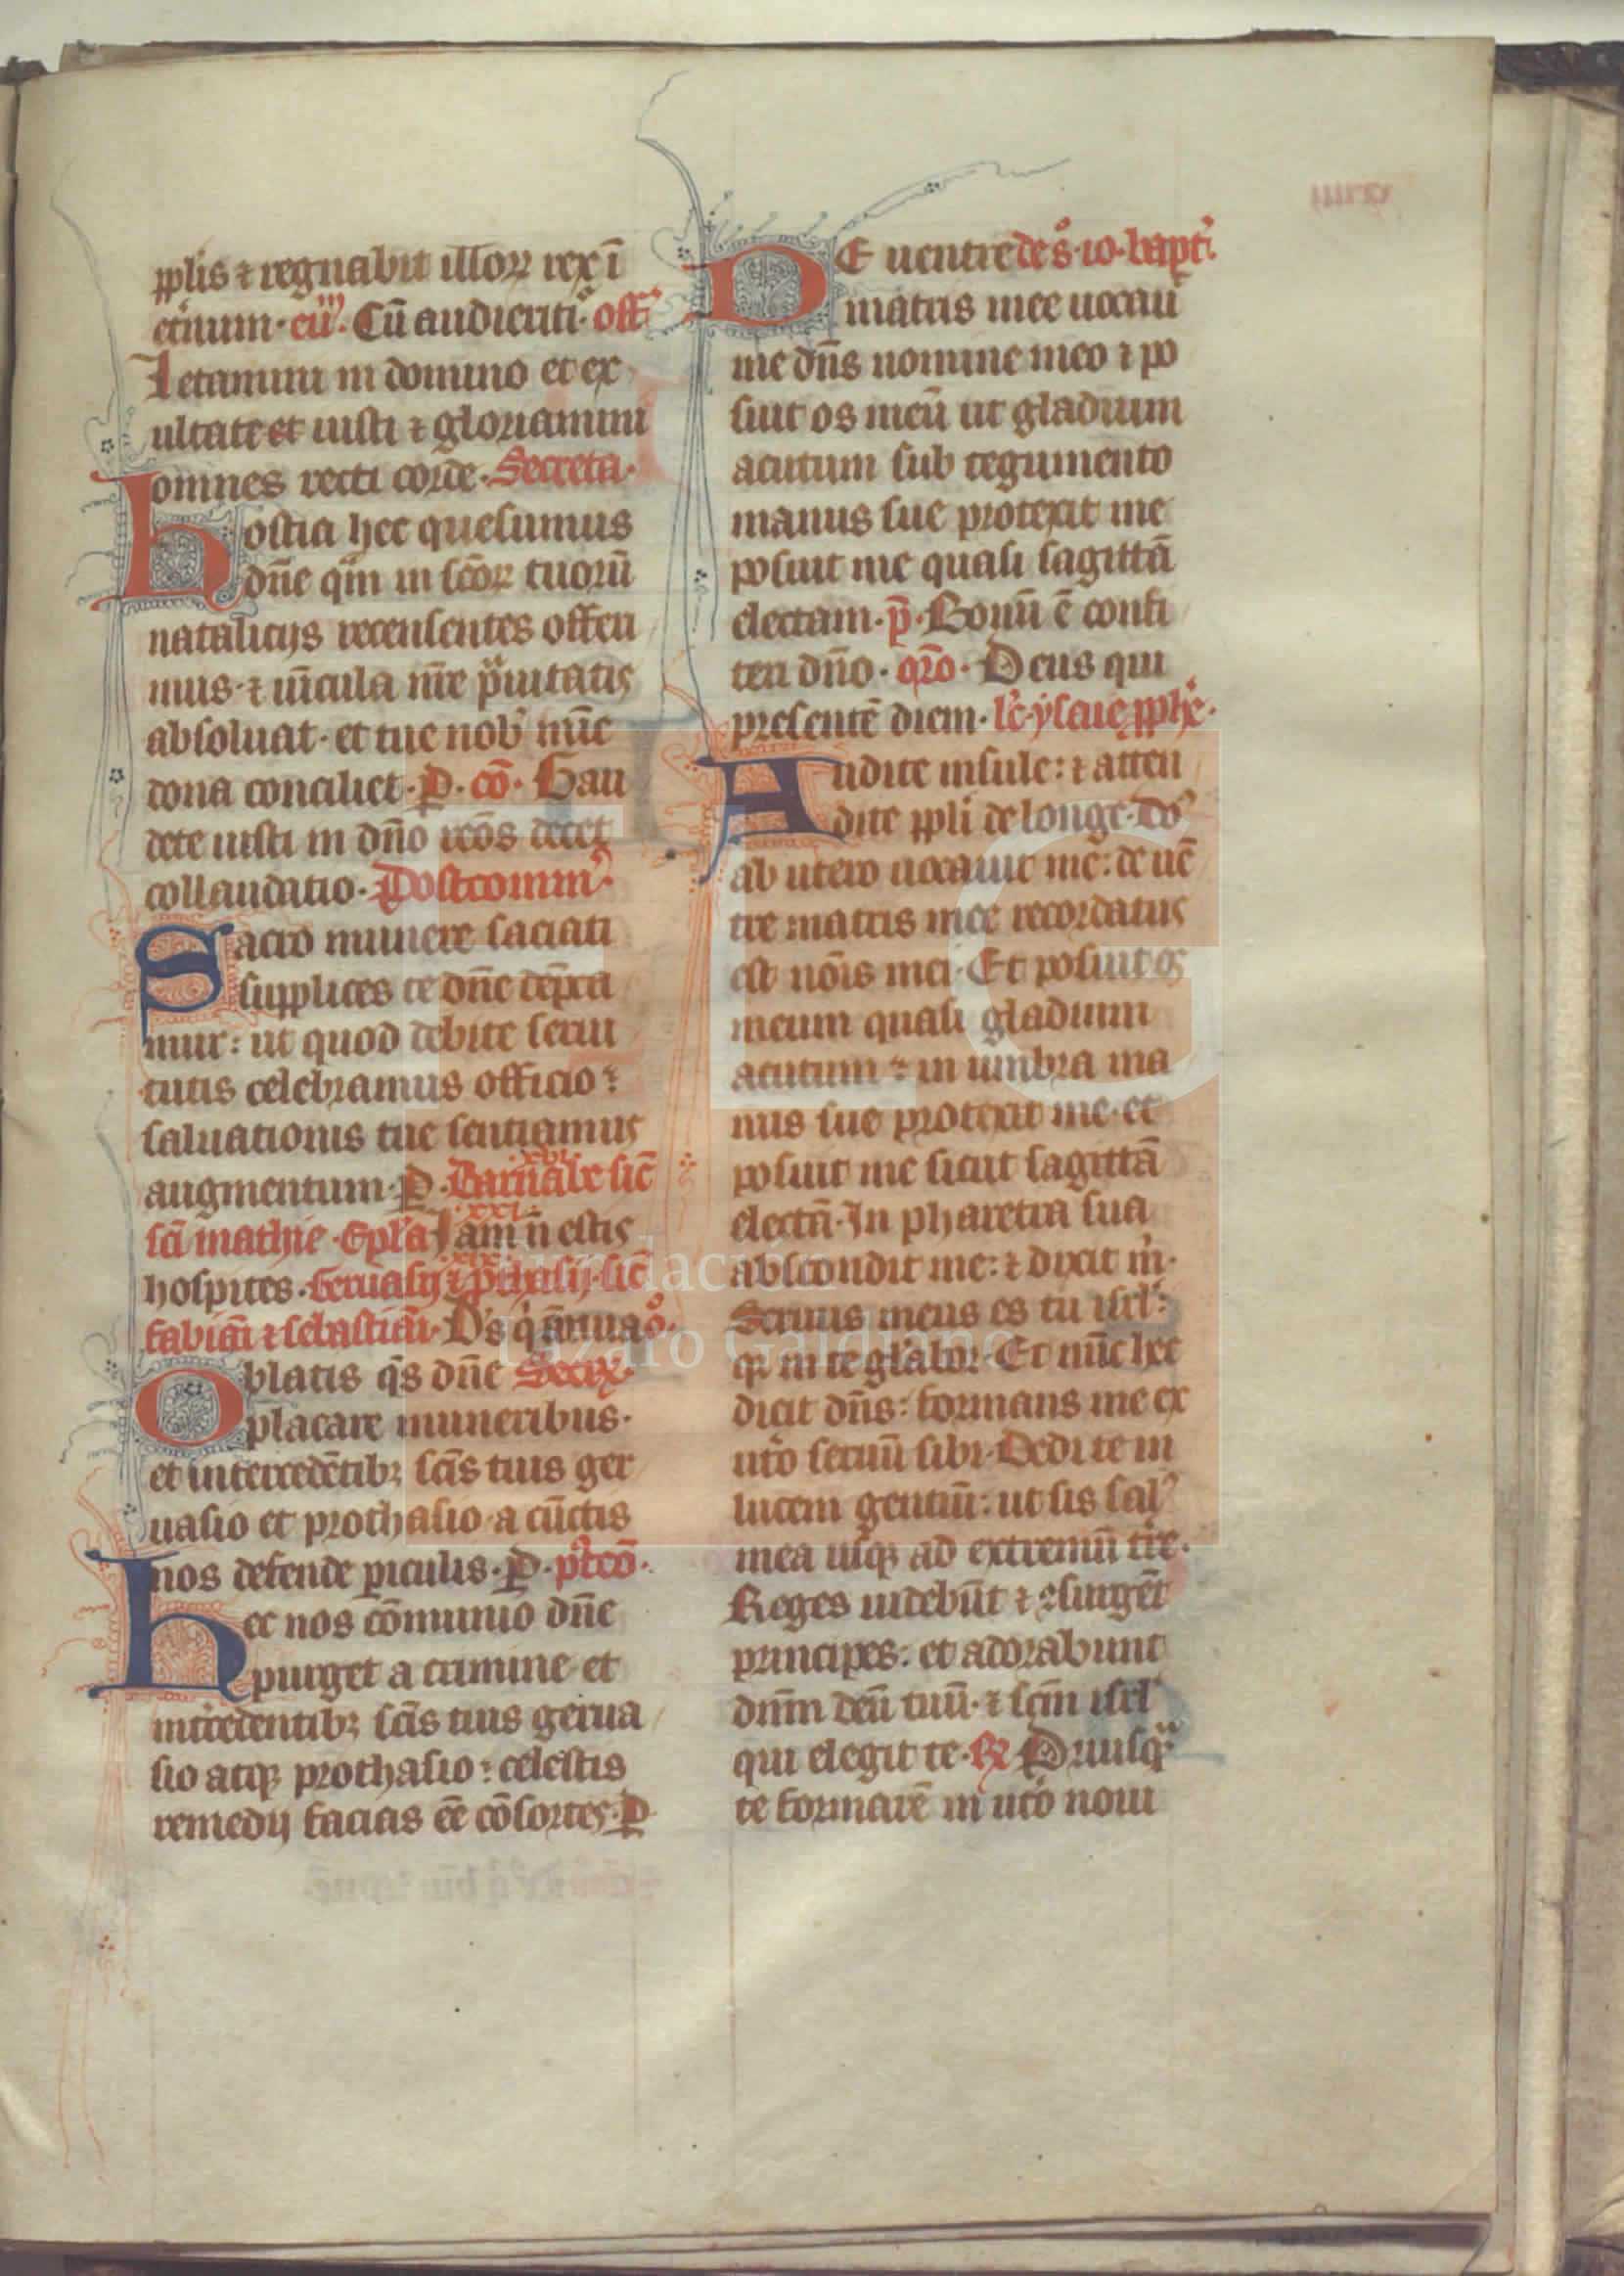 pplis ⁊ regnabit illoꝝ rex ī
et̾num. eu̅m. Cū audierit̾. off̾
Letamini in domino et ex
ultate et iusti ⁊ gloriamini
omnes recti corde. Secreta.
hostia hec quesumus
dn̄e q̄m in sc̄oꝝ tuorū
nataliciis recensentes offeri
mus. ⁊ uīcula nr̄e prauitatis
absoluat. et tue nob̾ mīe
dona conciliet. P. cō. Gau
dete iusti in dn̄o rcōs decet
collaudatio. Postcomm̾
Sacro munere saciati
supplices te dn̄e dep̄ca
mur: ut quod debite serui
tutis celebramus officio:
saluationis tue sentiamus
augmentum. P. Barnabe sic̄
sc̄i mathie. Epl̾a Iam n̄ estis
hospites. Geruasij ⁊ p̄thasij. sic̄
fabiāi ⁊ sebastiāi. D's q̇ ānua oº.
Oblatis q̄s dn̄e Secr̾.
placare muneribus.
et intercedētibꝫ sc̄is tuis ger
uasio et prothasio a cūctis
nos defende ꝑiculis. P. p̾tcō.
hec nos cōmunio dn̄e
purget a crimine et
int̾cedentibꝫ sc̄is tuis gerua
sio atqꝫ prothasio: celestis
remedij facias eē cōsortes. P
De uentre de s̾. io. bapt̾i.
matris mee uocauit
me dn̄s nomine meo ⁊ po
suit os meū ut gladium
acutum sub tegumento
manus sue protexit me
posuit me quasi sagittā
electam. p̄. Bonū ē confi
teri dn̄o. or̄o. Deus qui
presentē diem. lc̄. ysaie pph̄e.
Audite insule: ⁊ atten
dite ppli de longe. Do̾
ab utero uocauit me: de uē
tre matris mee recordatus
est noīs mei. Et posuit os
meum quasi gladium
acutum: in umbra ma
nus sue protexit me. et
posuit me sicut sagittā
electā. In pharetra sua
abscondit me: ⁊ dixit m̄.
Seruus meus es tu isrl̾:
qꝛ in te gl̾abor. Et nūc hec
dicit dn̄s: formans me ex
ut̾o seruū sibi. Dedi te in
lucem gentiū: ut sis sal̾
mea usqꝫ ad extremū tr̄e.
Reges uidebūt ⁊ ꝯsurgēt
principes: et adorabunt
dn̄m deū tuū. ⁊ sc̄m isrl̾
qui elegit te. ℟ Priusq̄
te formarē in ut̾o noui
Fundación
Lázaro Galdiano